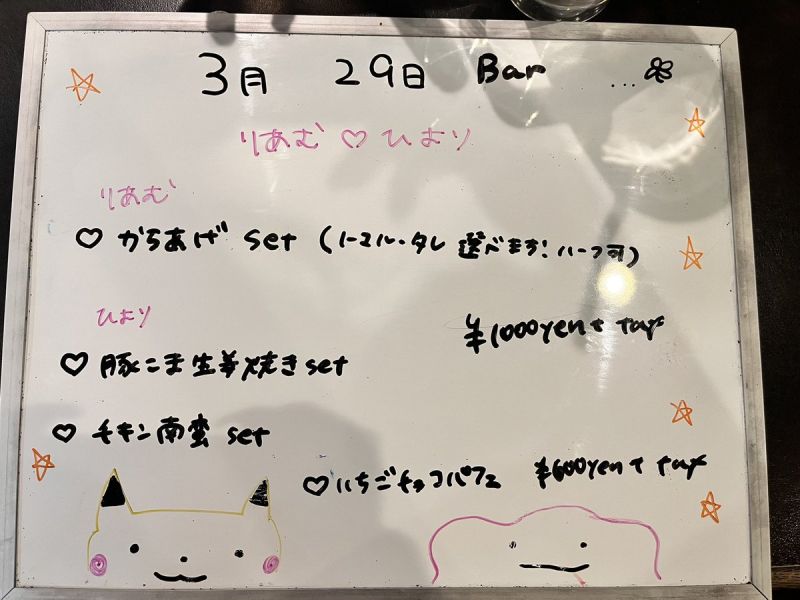 3月 29日 Bar ...
りあむ ♡ ひより
りあむ
♡ からあげ set (ノーマル・タレ 選べます! ハーフ可)
ひより
¥1000yen + tax
♡ 豚こま生姜焼き set
♡ チキン南蛮 set
♡ いちごチョコパフェ ¥600yen + tax